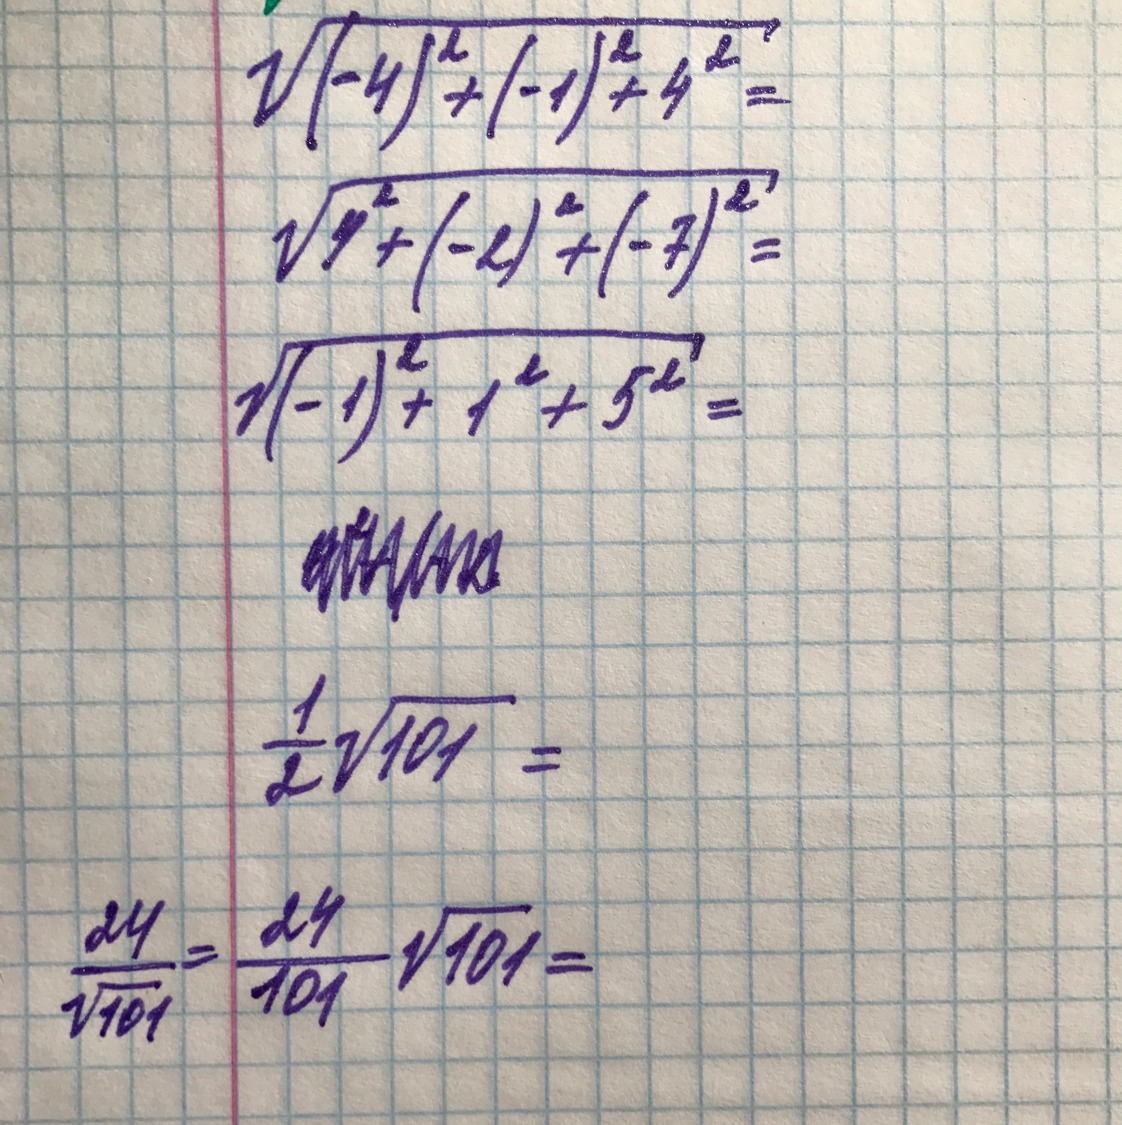 √(-4)²+(-1)²+4² =
√9²+(-2)²+(-7)² =
√(-1)²+1²+5² =
1/2 √101 =
24/√101 = 24/101 √101 =